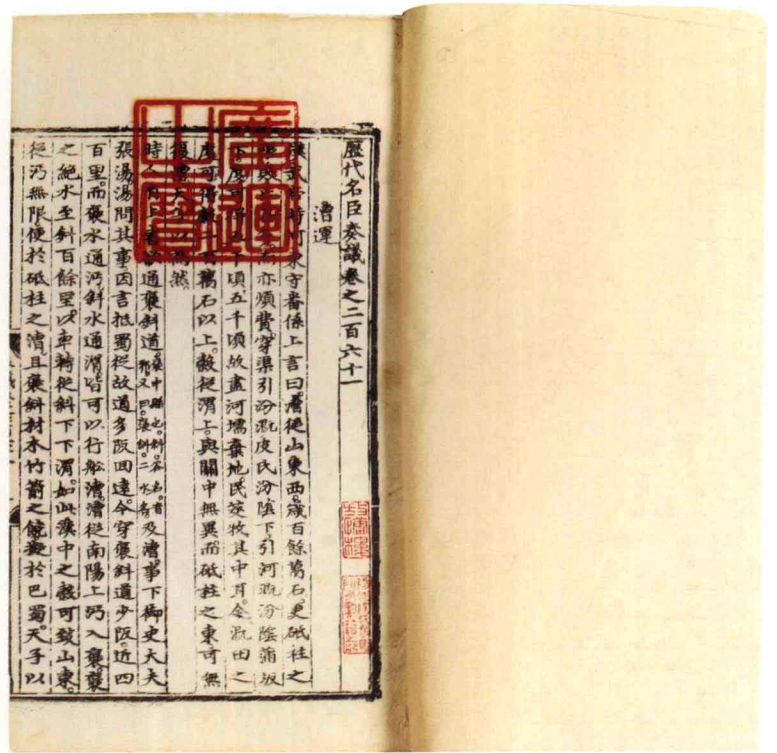 歷代名臣奏議卷之二百六十一
漕運
漢武帝時河東守番係上言曰漕從山東西歲百餘萬石更砥柱之
敗亦煩費穿渠引汾溉皮氏汾陰下引河溉汾陰蒲坂
下度可得五千頃五千頃故盡河壖棄地民茭牧其中耳今溉田之
度可得穀二百萬石以上穀從渭上與關中無異而砥柱之東可無
復漕天子以為然
時人有上書欲通褒斜道褒中縣也斜谷名音邪又曰褒斜二水名及漕事下御史大夫
張湯湯問其事因言抵蜀從故道多阪回遠今穿褒斜道少阪近四
百里而褒水通沔斜水通渭皆可以行船漕漕從南陽上沔入褒褒
之絕水至斜百餘里以車轉從斜下下渭如此漢中之穀可致山東
從沔無限便於砥柱之漕且褒斜材木竹箭之饒擬於巴蜀天子以
廣運之寶